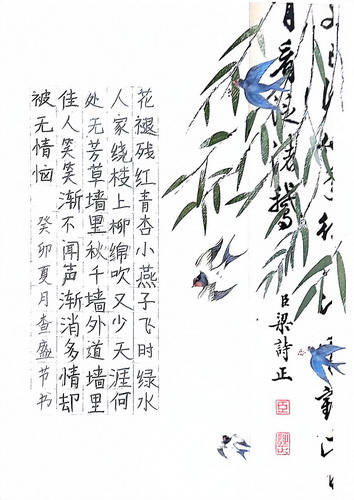 臣梁詩正
花褪残红青杏小燕子飞时绿水
人家绕枝上柳绵吹又少天涯何
处无芳草墙里秋千墙外道墙里
佳人笑笑渐不闻声渐消多情却
被无情恼 癸卯夏月查盛节书